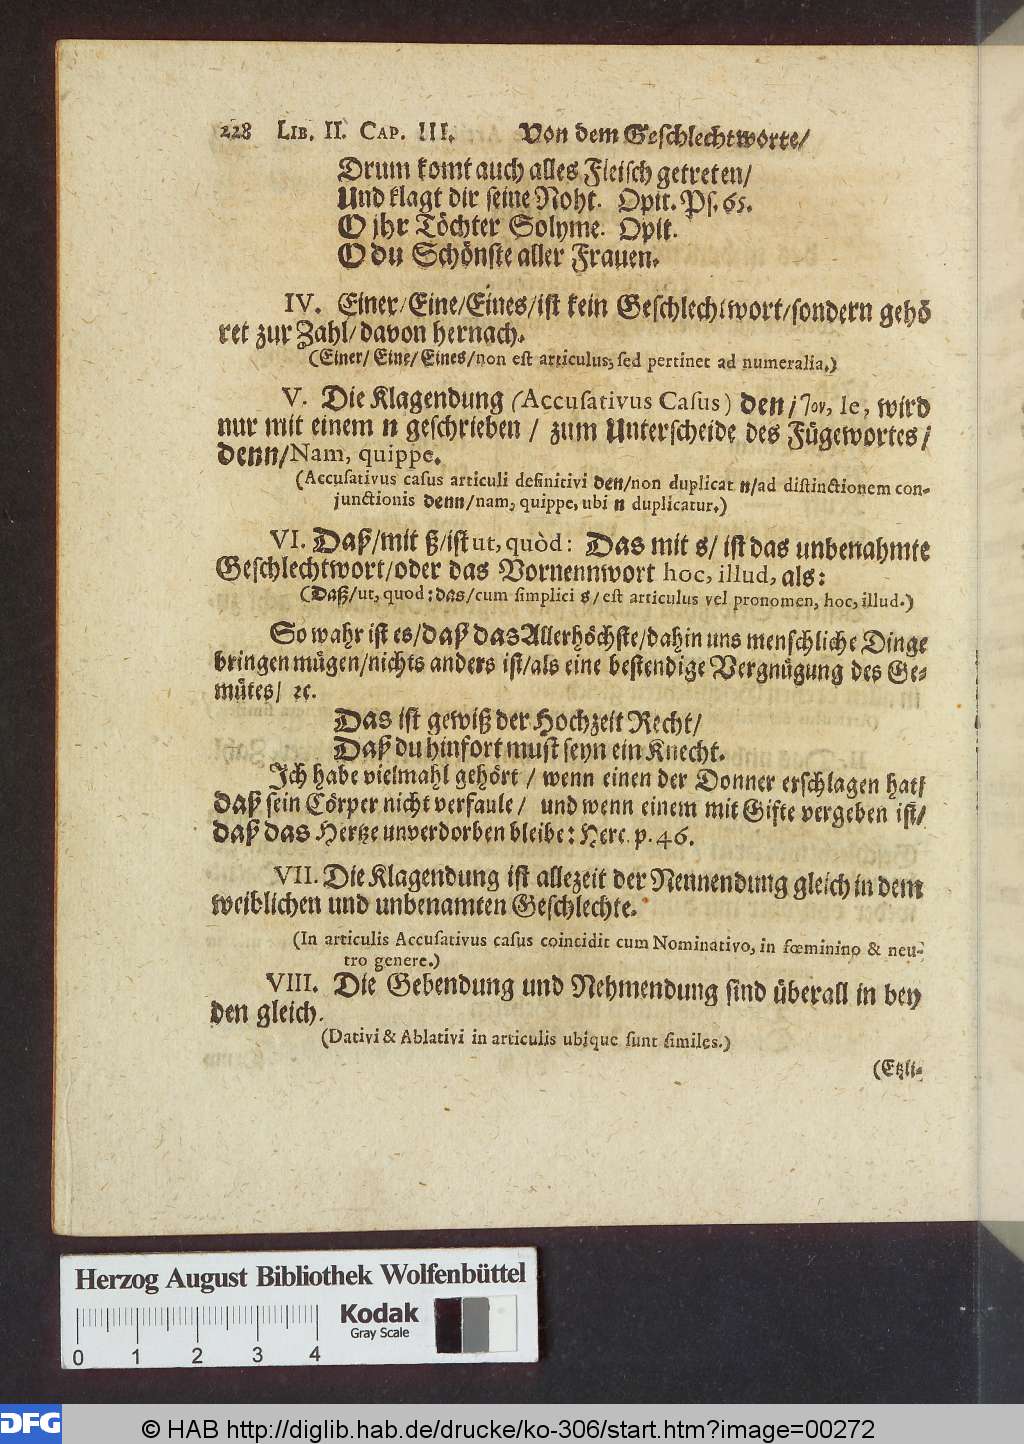 228 LIB. II. CAP. III. Von dem Geschlechtworte/
Drum komt auch alles Fleisch getreten/
Und klagt dir seine Noht. Opit. Ps. 65.
O jhr Töchter Solyme. Opit.
O du Schönste aller Frauen.
IV. Einer/Eine/Eines/ist kein Geschlechtwort/sondern gehö
ret zur Zahl/davon hernach.
(Einer/Eine/Eines/non est articulus, sed pertinet ad numeralia.)
V. Die Klagendung (Accusativus Casus) den/τον, le, wird
nur mit einem n geschrieben / zum Unterscheide des Fügewortes/
denn/Nam, quippe.
(Accusativus casus articuli definitivi den/non duplicat n/ad distinctionem con-
junctionis denn/nam, quippe, ubi n duplicatur.)
VI. Daß/mit ß/ist ut, quòd: Das mit s/ ist das unbenahmte
Geschlechtwort/oder das Vornennwort hoc, illud, als:
(Daß/ut, quod: das/cum simplici s/est articulus vel pronomen, hoc, illud.)
So wahr ist es/daß das Allerhöchste/dahin uns menschliche Dinge
bringen mügen/nichts anders ist/als eine bestendige Vergnügung des Ge-
mütes/ ꝛc.
Das ist gewiß der Hochzeit Recht/
Daß du hinfort must seyn ein Knecht.
Ich habe vielmahl gehört / wenn einen der Donner erschlagen hat/
daß sein Cörper nicht verfaule/ und wenn einem mit Gifte vergeben ist/
daß das Hertze unverdorben bleibe: Herc. p. 46.
VII. Die Klagendung ist allezeit der Nennendung gleich in dem
weiblichen und unbenamten Geschlechte.
(In articulis Accusativus casus coincidit cum Nominativo, in fœminino & neu-
tro genere.)
VIII. Die Gebendung und Nehmendung sind überall in bey
den gleich.
(Dativi & Ablativi in articulis ubique sunt similes.)
(Etzli-
Herzog August Bibliothek Wolfenbüttel
Kodak
Gray Scale
0 1 2 3 4
DFG
© HAB http://diglib.hab.de/drucke/ko-306/start.htm?image=00272